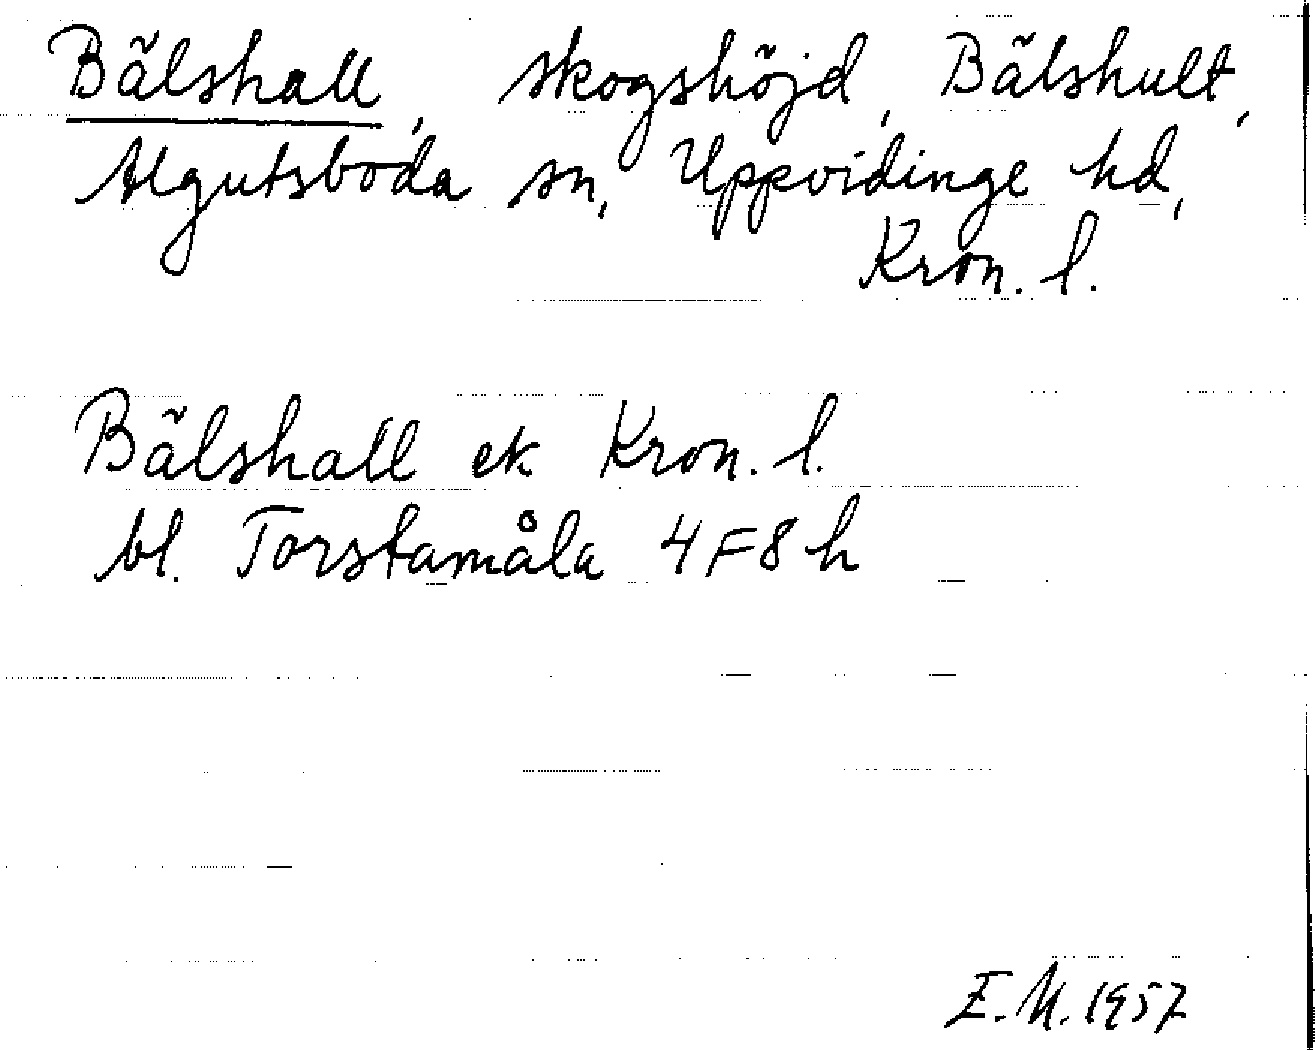 Bälshall, skogshöjd, Bälshult,
Algutsboda sn, Uppvidinge hd,
Kron. l.
Bälshall ek Kron. l.
bl. Torstamåla 4F8h
E.M. 1957